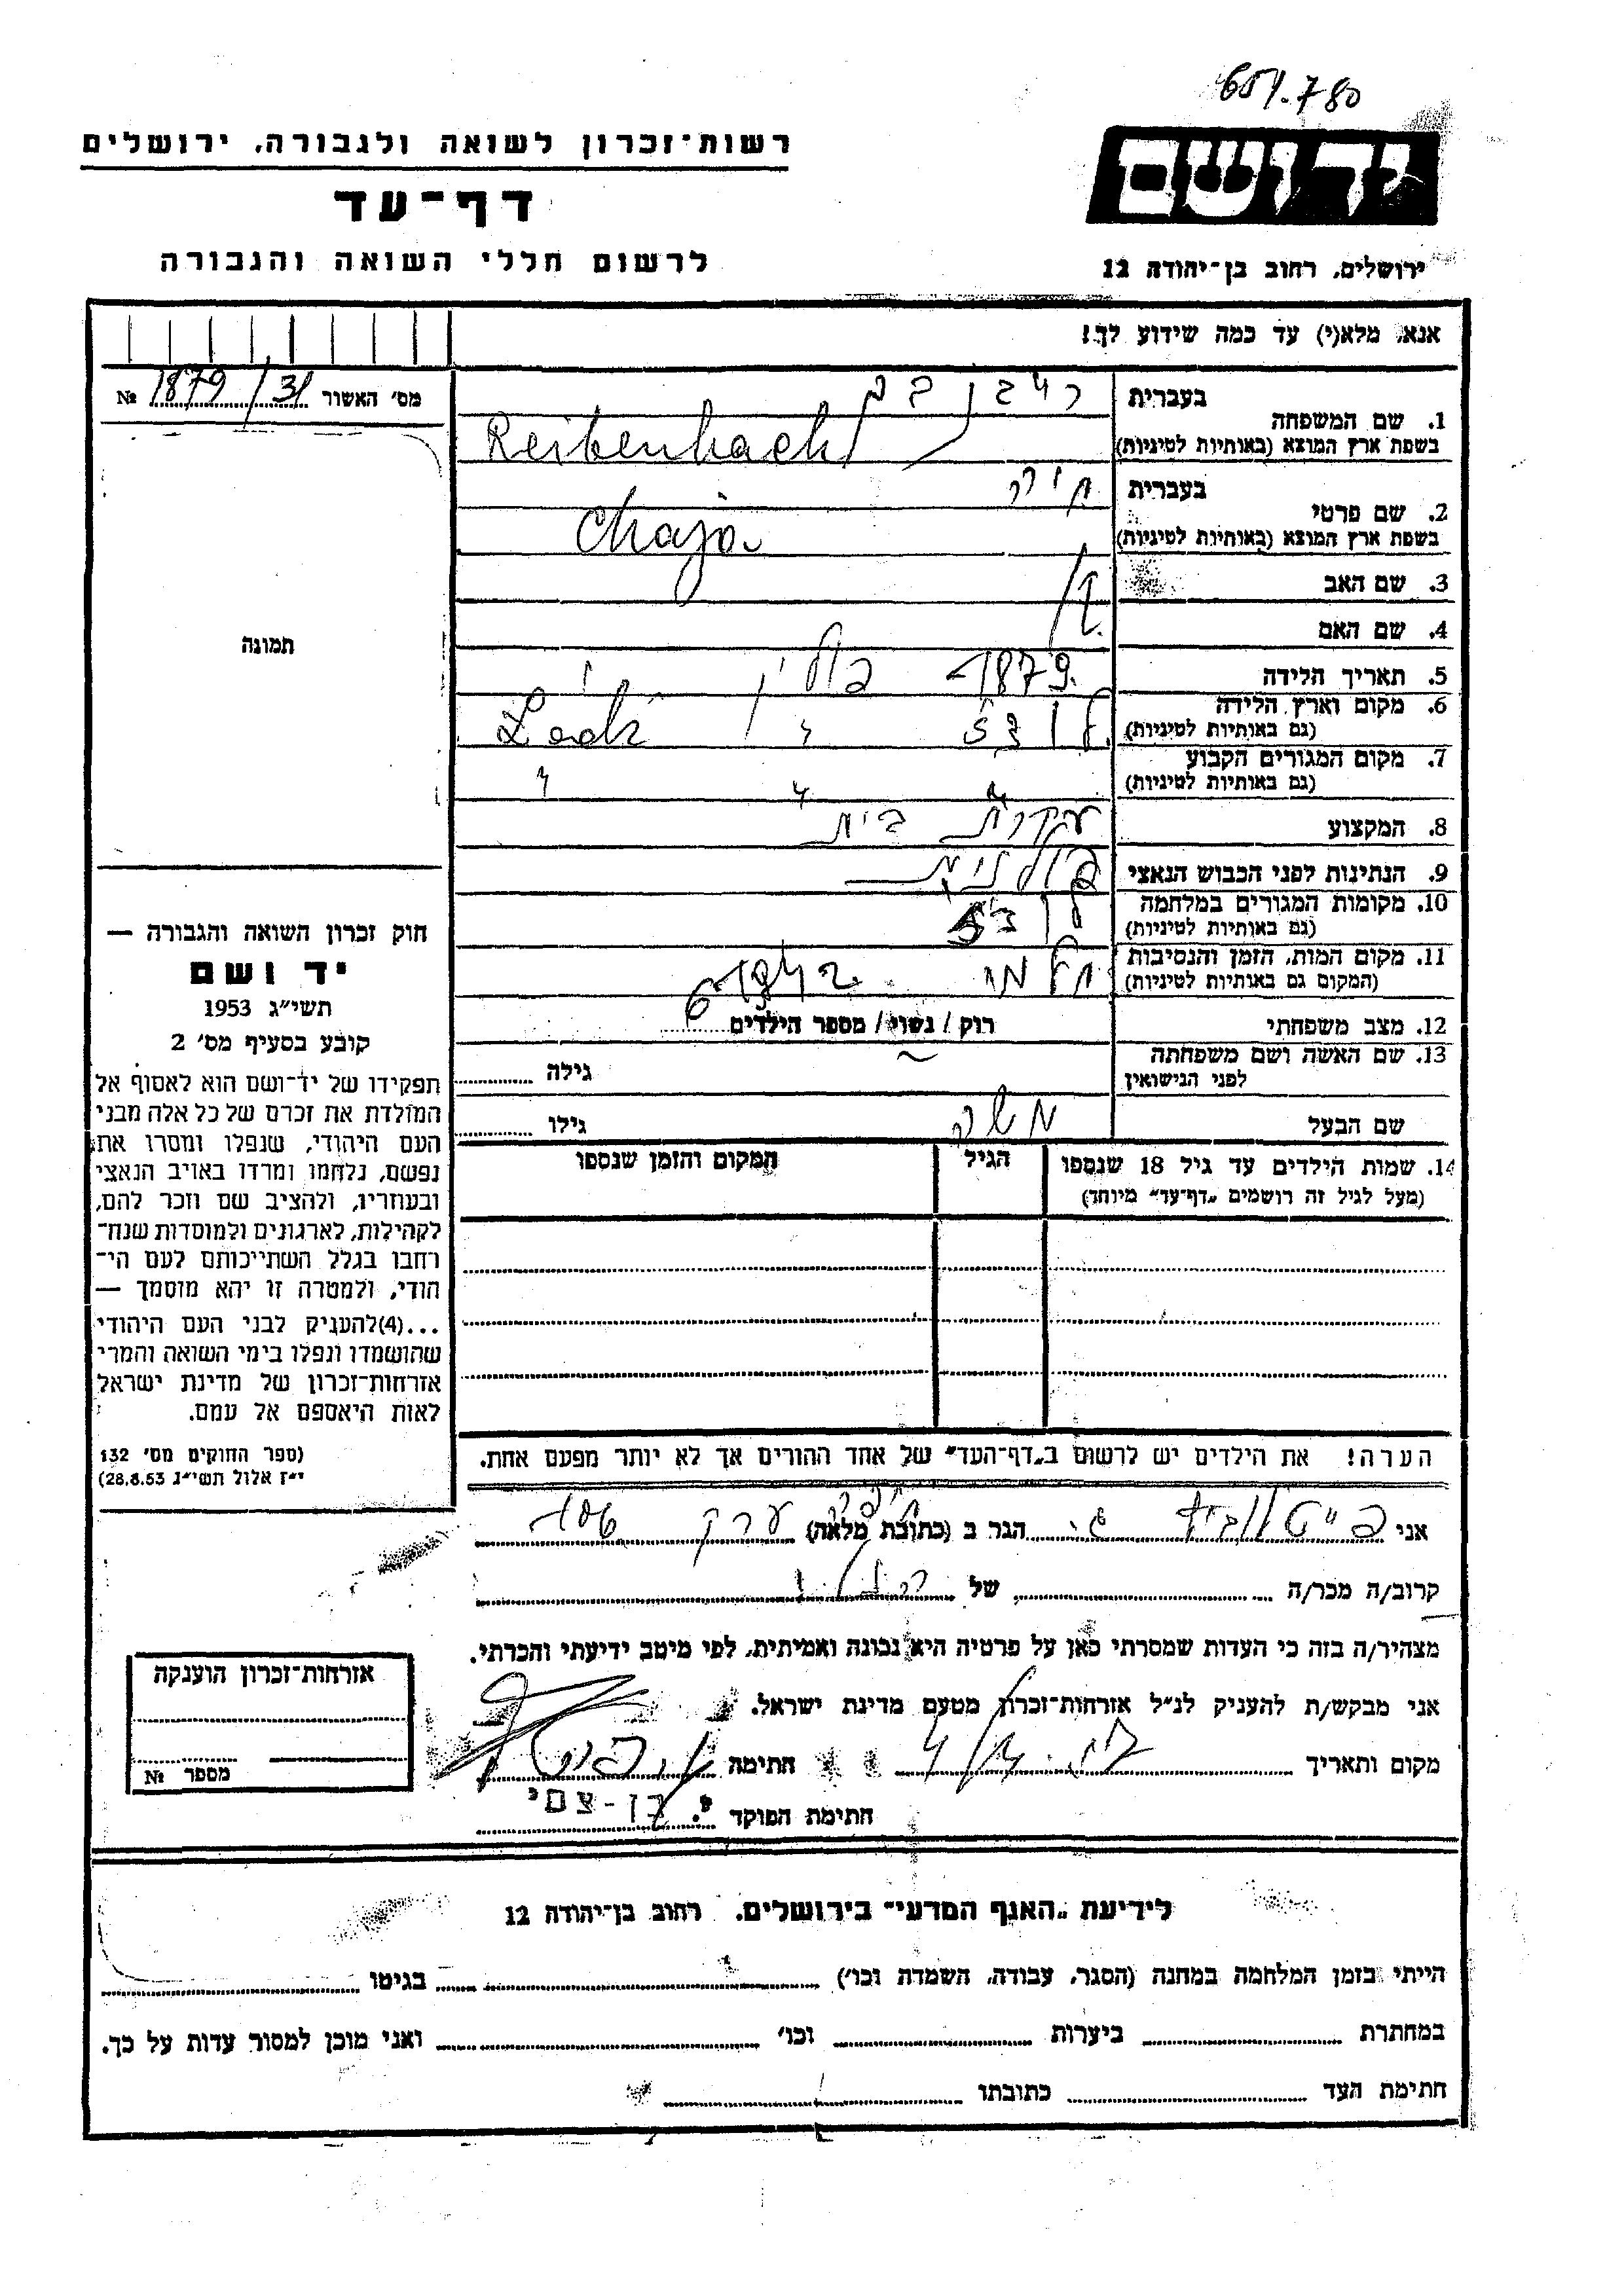 651.780
רשות־זכרון לשואה ולגבורה, ירושלים
דף־עד
לרשום חללי השואה והגבורה
יד ושם
ירושלים, רחוב בן־יהודה 12
אנא, מלא(י) עד כמה שידוע לך!
מס׳ האשור 1879/31 №
תמונה
בעברית
1. שם המשפחה
בשפת ארץ המוצא (באותיות לטיניות)
בעברית חיה
2. שם פרטי
בשפת ארץ המוצא (באותיות לטיניות) Chaja
3. שם האב
4. שם האם
5. תאריך הלידה 1879
6. מקום וארץ הלידה לודז פולין Lodz
(גם באותיות לטיניות)
7. מקום המגורים הקבוע " " "
(גם באותיות לטיניות)
8. המקצוע עקרת בית
9. הנתינות לפני הכבוש הנאצי פולנית
10. מקומות המגורים במלחמה לודז
(גם באותיות לטיניות)
11. מקום המות, הזמן והנסיבות חלמנו
(המקום גם באותיות לטיניות)
12. מצב משפחתי רוק / נשוי / מספר הילדים 6
13. שם האשה ושם משפחתה
לפני הנישואין גילה
שם הבעל משה גילו
14. שמות הילדים עד גיל 18 שנספו הגיל המקום והזמן שנספו
(מעל לגיל זה רושמים „דף־עד״ מיוחד)
הערה! את הילדים יש לרשום ב„דף־העד״ של אחד ההורים אך לא יותר מפעם אחת.
חוק זכרון השואה והגבורה —
יד ושם
תשי״ג 1953
קובע בסעיף מס׳ 2
תפקידו של יד־ושם הוא לאסוף אל
המולדת את זכרם של כל אלה מבני
העם היהודי, שנפלו ומסרו את
נפשם, נלחמו ומרדו באויב הנאצי
ובעוזריו, ולהציב שם וזכר להם,
לקהילות, לארגונים ולמוסדות שנח־
רבו בגלל השתייכותם לעם הי־
הודי, ולמטרה זו יהא מוסמך —
...(4)להעניק לבני העם היהודי
שהושמדו ונפלו בימי השואה והמרי
אזרחות־זכרון של מדינת ישראל
לאות היאספם אל עמם.
(ספר החוקים מס׳ 132
י״ז אלול תשי״ג 28.8.53)
אני הגר ב (כתובת מלאה)
קרוב/ה מכר/ה של
מצהיר/ה בזה כי העדות שמסרתי כאן על פרטיה היא נכונה ואמיתית, לפי מיטב ידיעתי והכרתי.
אני מבקש/ת להעניק לנ״ל אזרחות־זכרון מטעם מדינת ישראל.
מקום ותאריך חתימה
חתימת הפוקד י. בן-צמי
אזרחות־זכרון הוענקה
מספר №
לידיעת „האגף המדעי״ בירושלים, רחוב בן־יהודה 12
הייתי בזמן המלחמה במחנה (הסגר, עבודה, השמדה וכו׳) בגיטו
במחתרת ביערות וכו׳ ואני מוכן למסור עדות על כך.
חתימת העד כתובתו